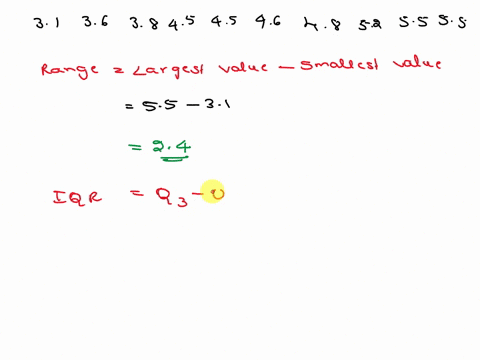 3.1 3.6 3.8 4.5 4.5 4.6 4.8 5.2 5.5 5.5
Range = Largest value - Smallest value
= 5.5 - 3.1
= 2.4
IQR = Q3 -